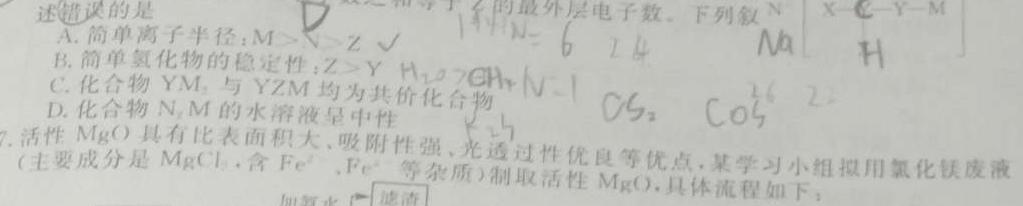 的最外层电子数。下列叙 N [ X C Y-M ]
述错误的是 D Na H
A. 简单离子半径:M>N>Z ✓ 6 24
B. 简单氢化物的稳定性:Z>Y H₂O>CH₄
C. 化合物 YM₂ 与 YZM 均为共价化合物 CS₂ COS
D. 化合物 N₂M 的水溶液呈中性
7. 活性 MgO 具有比表面积大、吸附性强、光透过性优良等优点,某学习小组拟用氯化镁废液
(主要成分是 MgCl₂,含 Fe²⁺、Fe³⁺ 等杂质)制取活性 MgO,具体流程如下:
加氨水 滤渣